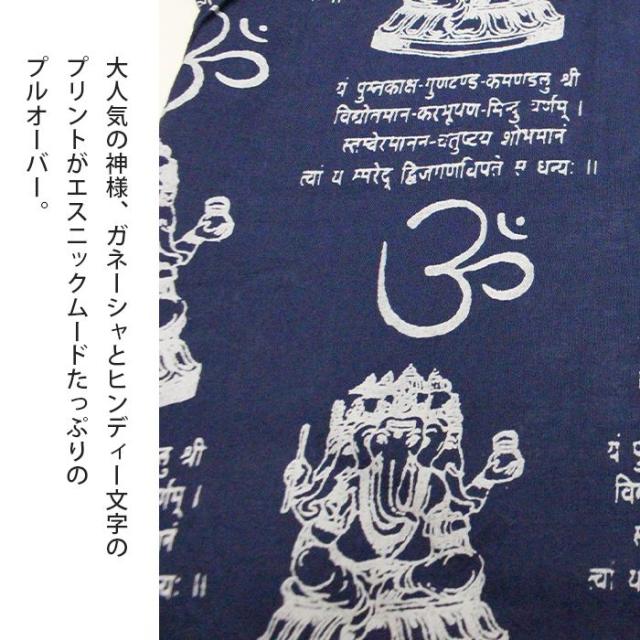 大人気の神様、ガネーシャとヒンディー文字の
プリントがエスニックムードたっぷりの
プルオーバー。
ॐ
यं पुष्नकाक्ष-गुणटण्ड-कमण्डलु श्री
विद्योतमान-करभूषण-मिन्दु वर्णम् ।
स्तम्वेरमानन-चतुष्टय शोभमानं
त्वां य स्मरेद् द्विजगणविपते स धन्यः ॥
ॐ
श्री
यं
त्वां य